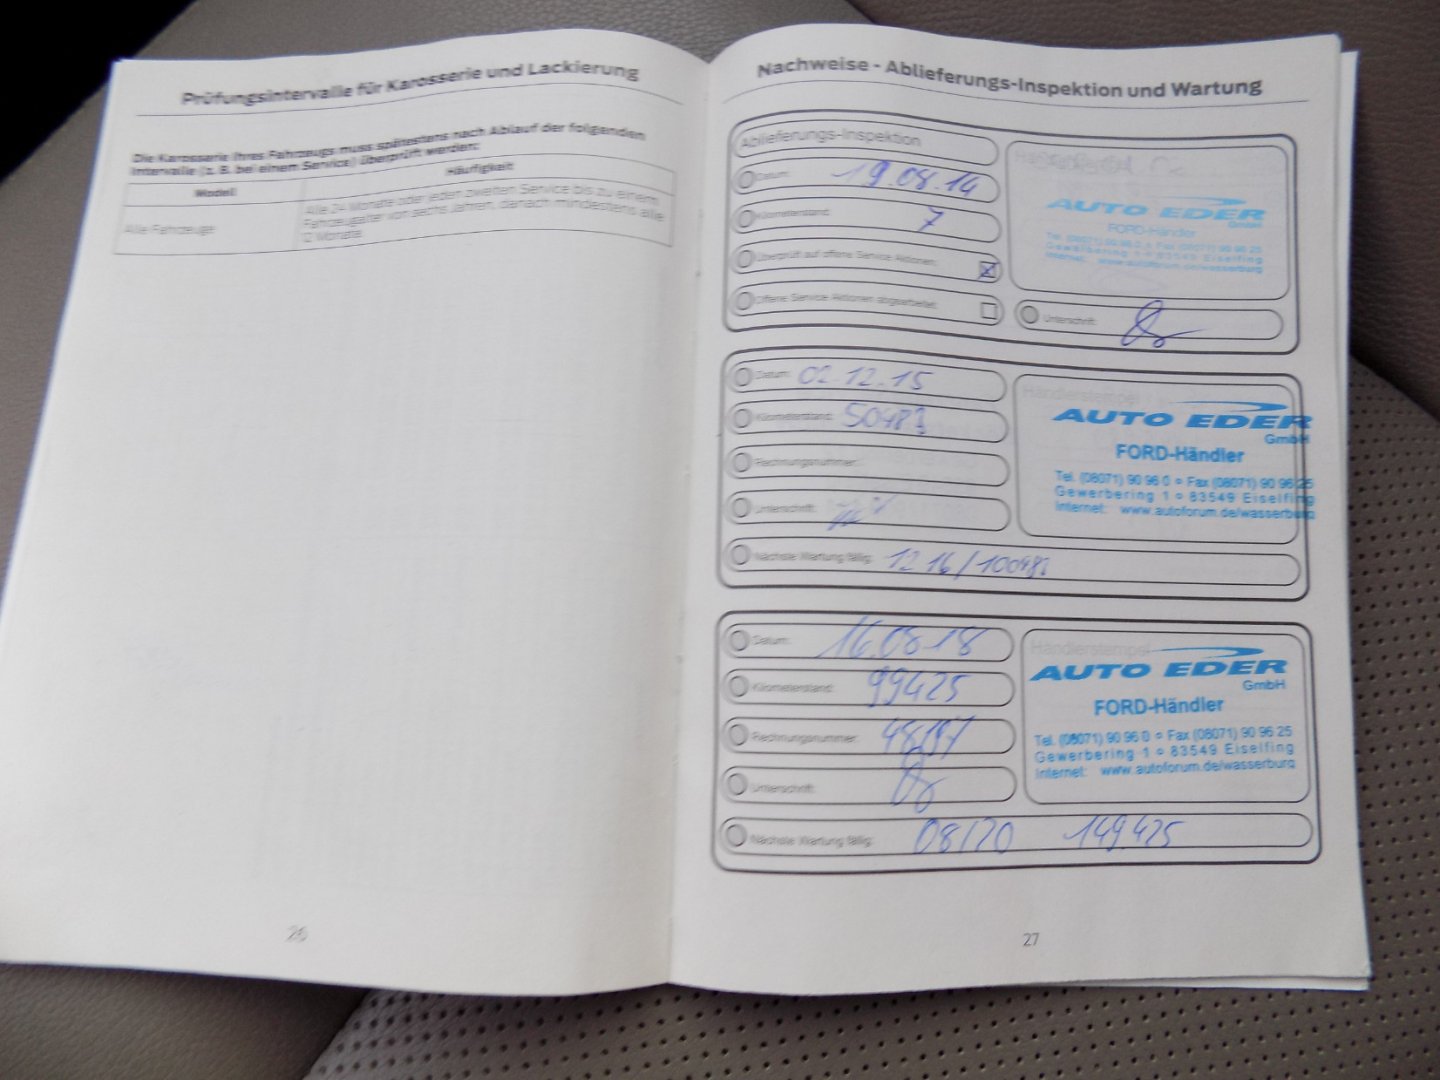 Prüfungsintervalle für Karosserie und Lackierung
Die Karosserie Ihres Fahrzeugs muss spätestens nach Ablauf der folgenden
Intervalle (z. B. bei einem Service) überprüft werden:
Modell Häufigkeit
Alle Fahrzeuge Alle 24 Monate oder jeden zweiten Service bis zu einem
Fahrzeugalter von sechs Jahren, danach mindestens alle
12 Monate
26
Nachweise - Ablieferungs-Inspektion und Wartung
Ablieferungs-Inspektion
Datum: 19.08.14
Kilometerstand: 7
Überprüft auf offene Service Aktionen:
Offene Service Aktionen abgearbeitet:
AUTO EDER
GmbH
FORD-Händler
Tel. (08071) 90 96 0 Fax (08071) 90 96 25
Gewerbering 1 83549 Eiselfing
Internet: www.autoforum.de/wasserburg
Unterschrift:
Datum: 02.12.15
Kilometerstand: 50483
Rechnungsnummer:
Unterschrift:
Nächste Wartung fällig: 12 16 / 100483
Händlerstempel
AUTO EDER
GmbH
FORD-Händler
Tel. (08071) 90 96 0 Fax (08071) 90 96 25
Gewerbering 1 83549 Eiselfing
Internet: www.autoforum.de/wasserburg
Datum: 16.08.18
Kilometerstand: 99425
Rechnungsnummer:
Unterschrift:
Nächste Wartung fällig: 08/20 149.425
Händlerstempel
AUTO EDER
GmbH
FORD-Händler
Tel. (08071) 90 96 0 Fax (08071) 90 96 25
Gewerbering 1 83549 Eiselfing
Internet: www.autoforum.de/wasserburg
27